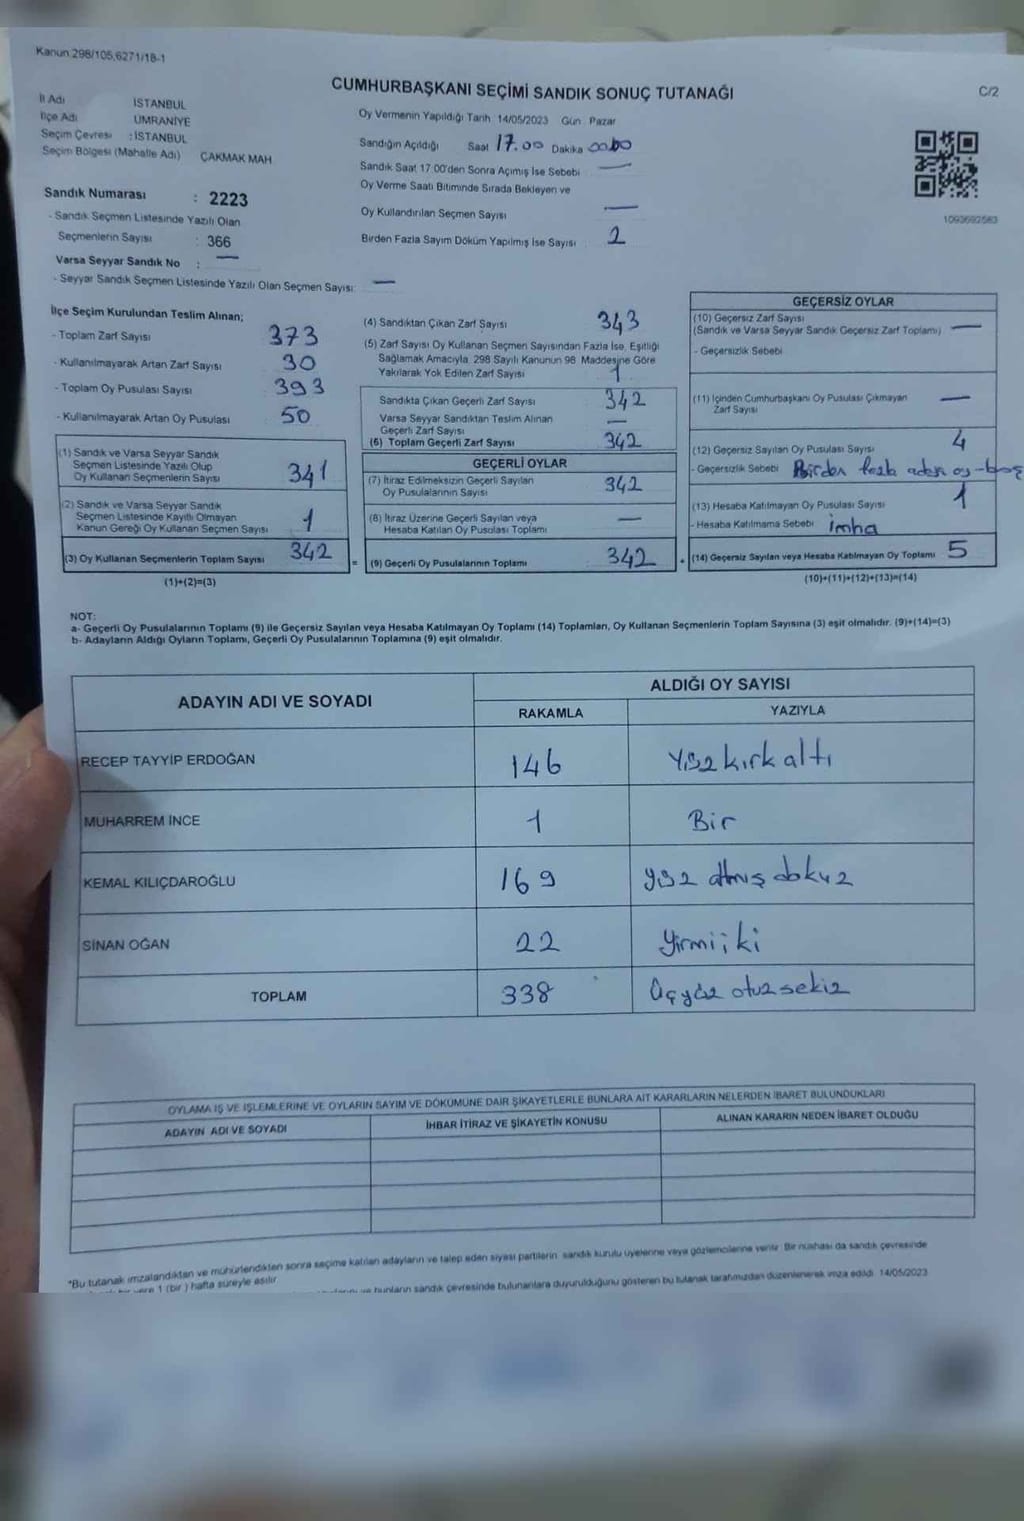 Kanun:298/105,6271/18-1
CUMHURBAŞKANI SEÇİMİ SANDIK SONUÇ TUTANAĞI
C/2
İl Adı İSTANBUL
İlçe Adı ÜMRANİYE
Seçim Çevresi : İSTANBUL
Seçim Bölgesi (Mahalle Adı) ÇAKMAK MAH
Sandık Numarası : 2223
- Sandık Seçmen Listesinde Yazılı Olan
Seçmenlerin Sayısı : 366
Varsa Seyyar Sandık No : —
- Seyyar Sandık Seçmen Listesinde Yazılı Olan Seçmen Sayısı: —
Oy Vermenin Yapıldığı Tarih: 14/05/2023 Gün: Pazar
Sandığın Açıldığı Saat 17.00 Dakika
Sandık Saat 17:00'den Sonra Açımış İse Sebebi —
Oy Verme Saati Bitiminde Sırada Bekleyen ve
Oy Kullandırılan Seçmen Sayısı —
Birden Fazla Sayım Döküm Yapılmış İse Sayısı 2
1093692563
İlçe Seçim Kurulundan Teslim Alınan;
- Toplam Zarf Sayısı 373
- Kullanılmayarak Artan Zarf Sayısı 30
- Toplam Oy Pusulası Sayısı 393
- Kullanılmayarak Artan Oy Pusulası 50
(1) Sandık ve Varsa Seyyar Sandık
Seçmen Listesinde Yazılı Olup
Oy Kullanan Seçmenlerin Sayısı 341
(2) Sandık ve Varsa Seyyar Sandık
Seçmen Listesinde Kayıtlı Olmayan
Kanun Gereği Oy Kullanan Seçmen Sayısı 1
(3) Oy Kullanan Seçmenlerin Toplam Sayısı 342
(1)+(2)=(3)
=
(4) Sandıktan Çıkan Zarf Sayısı 343
(5) Zarf Sayısı Oy Kullanan Seçmen Sayısından Fazla İse, Eşitliği
Sağlamak Amacıyla, 298 Sayılı Kanunun 98. Maddesine Göre
Yakılarak Yok Edilen Zarf Sayısı 1
Sandıkta Çıkan Geçerli Zarf Sayısı 342
Varsa Seyyar Sandıktan Teslim Alınan
Geçerli Zarf Sayısı —
(6) Toplam Geçerli Zarf Sayısı 342
GEÇERLİ OYLAR
(7) İtiraz Edilmeksizin Geçerli Sayılan
Oy Pusulalarının Sayısı 342
(8) İtiraz Üzerine Geçerli Sayılan veya
Hesaba Katılan Oy Pusulası Toplamı —
(9) Geçerli Oy Pusulalarının Toplamı 342
+
GEÇERSİZ OYLAR
(10) Geçersiz Zarf Sayısı
(Sandık ve Varsa Seyyar Sandık Geçersiz Zarf Toplamı) —
- Geçersizlik Sebebi
(11) İçinden Cumhurbaşkanı Oy Pusulası Çıkmayan
Zarf Sayısı —
(12) Geçersiz Sayılan Oy Pusulası Sayısı 4
- Geçersizlik Sebebi Birden fazla adın oy - boş
(13) Hesaba Katılmayan Oy Pusulası Sayısı 1
- Hesaba Katılmama Sebebi İmha
(14) Geçersiz Sayılan veya Hesaba Katılmayan Oy Toplamı 5
(10)+(11)+(12)+(13)=(14)
NOT:
a- Geçerli Oy Pusulalarının Toplamı (9) ile Geçersiz Sayılan veya Hesaba Katılmayan Oy Toplamı (14) Toplamları, Oy Kullanan Seçmenlerin Toplam Sayısına (3) eşit olmalıdır. (9)+(14)=(3)
b- Adayların Aldığı Oyların Toplamı, Geçerli Oy Pusulalarının Toplamına (9) eşit olmalıdır.
ADAYIN ADI VE SOYADI ALDIĞI OY SAYISI
RAKAMLA YAZIYLA
RECEP TAYYİP ERDOĞAN 146 Yüz kırk altı
MUHARREM İNCE 1 Bir
KEMAL KILIÇDAROĞLU 169 yüz atmış dokuz
SİNAN OĞAN 22 Yirmi iki
TOPLAM 338 Üçyüz otuz sekiz
OYLAMA İŞ VE İŞLEMLERİNE VE OYLARIN SAYIM VE DÖKÜMÜNE DAİR ŞİKAYETLERLE BUNLARA AİT KARARLARIN NELERDEN İBARET BULUNDUKLARI
ADAYIN ADI VE SOYADI İHBAR İTİRAZ VE ŞİKAYETİN KONUSU ALINAN KARARIN NEDEN İBARET OLDUĞU
*Bu tutanak imzalandıktan ve mühürlendikten sonra seçime katılan adayların ve talep eden siyasi partilerin sandık kurulu üyelerine veya gözlemcilerine verilir. Bir nüshası da sandık çevresinde
bir yere 1 (bir) hafta süreyle asılır.
bunların sandık çevresinde bulunanlara duyurulduğunu gösteren bu tutanak tarafımızdan düzenlenerek imza edildi. 14/05/2023